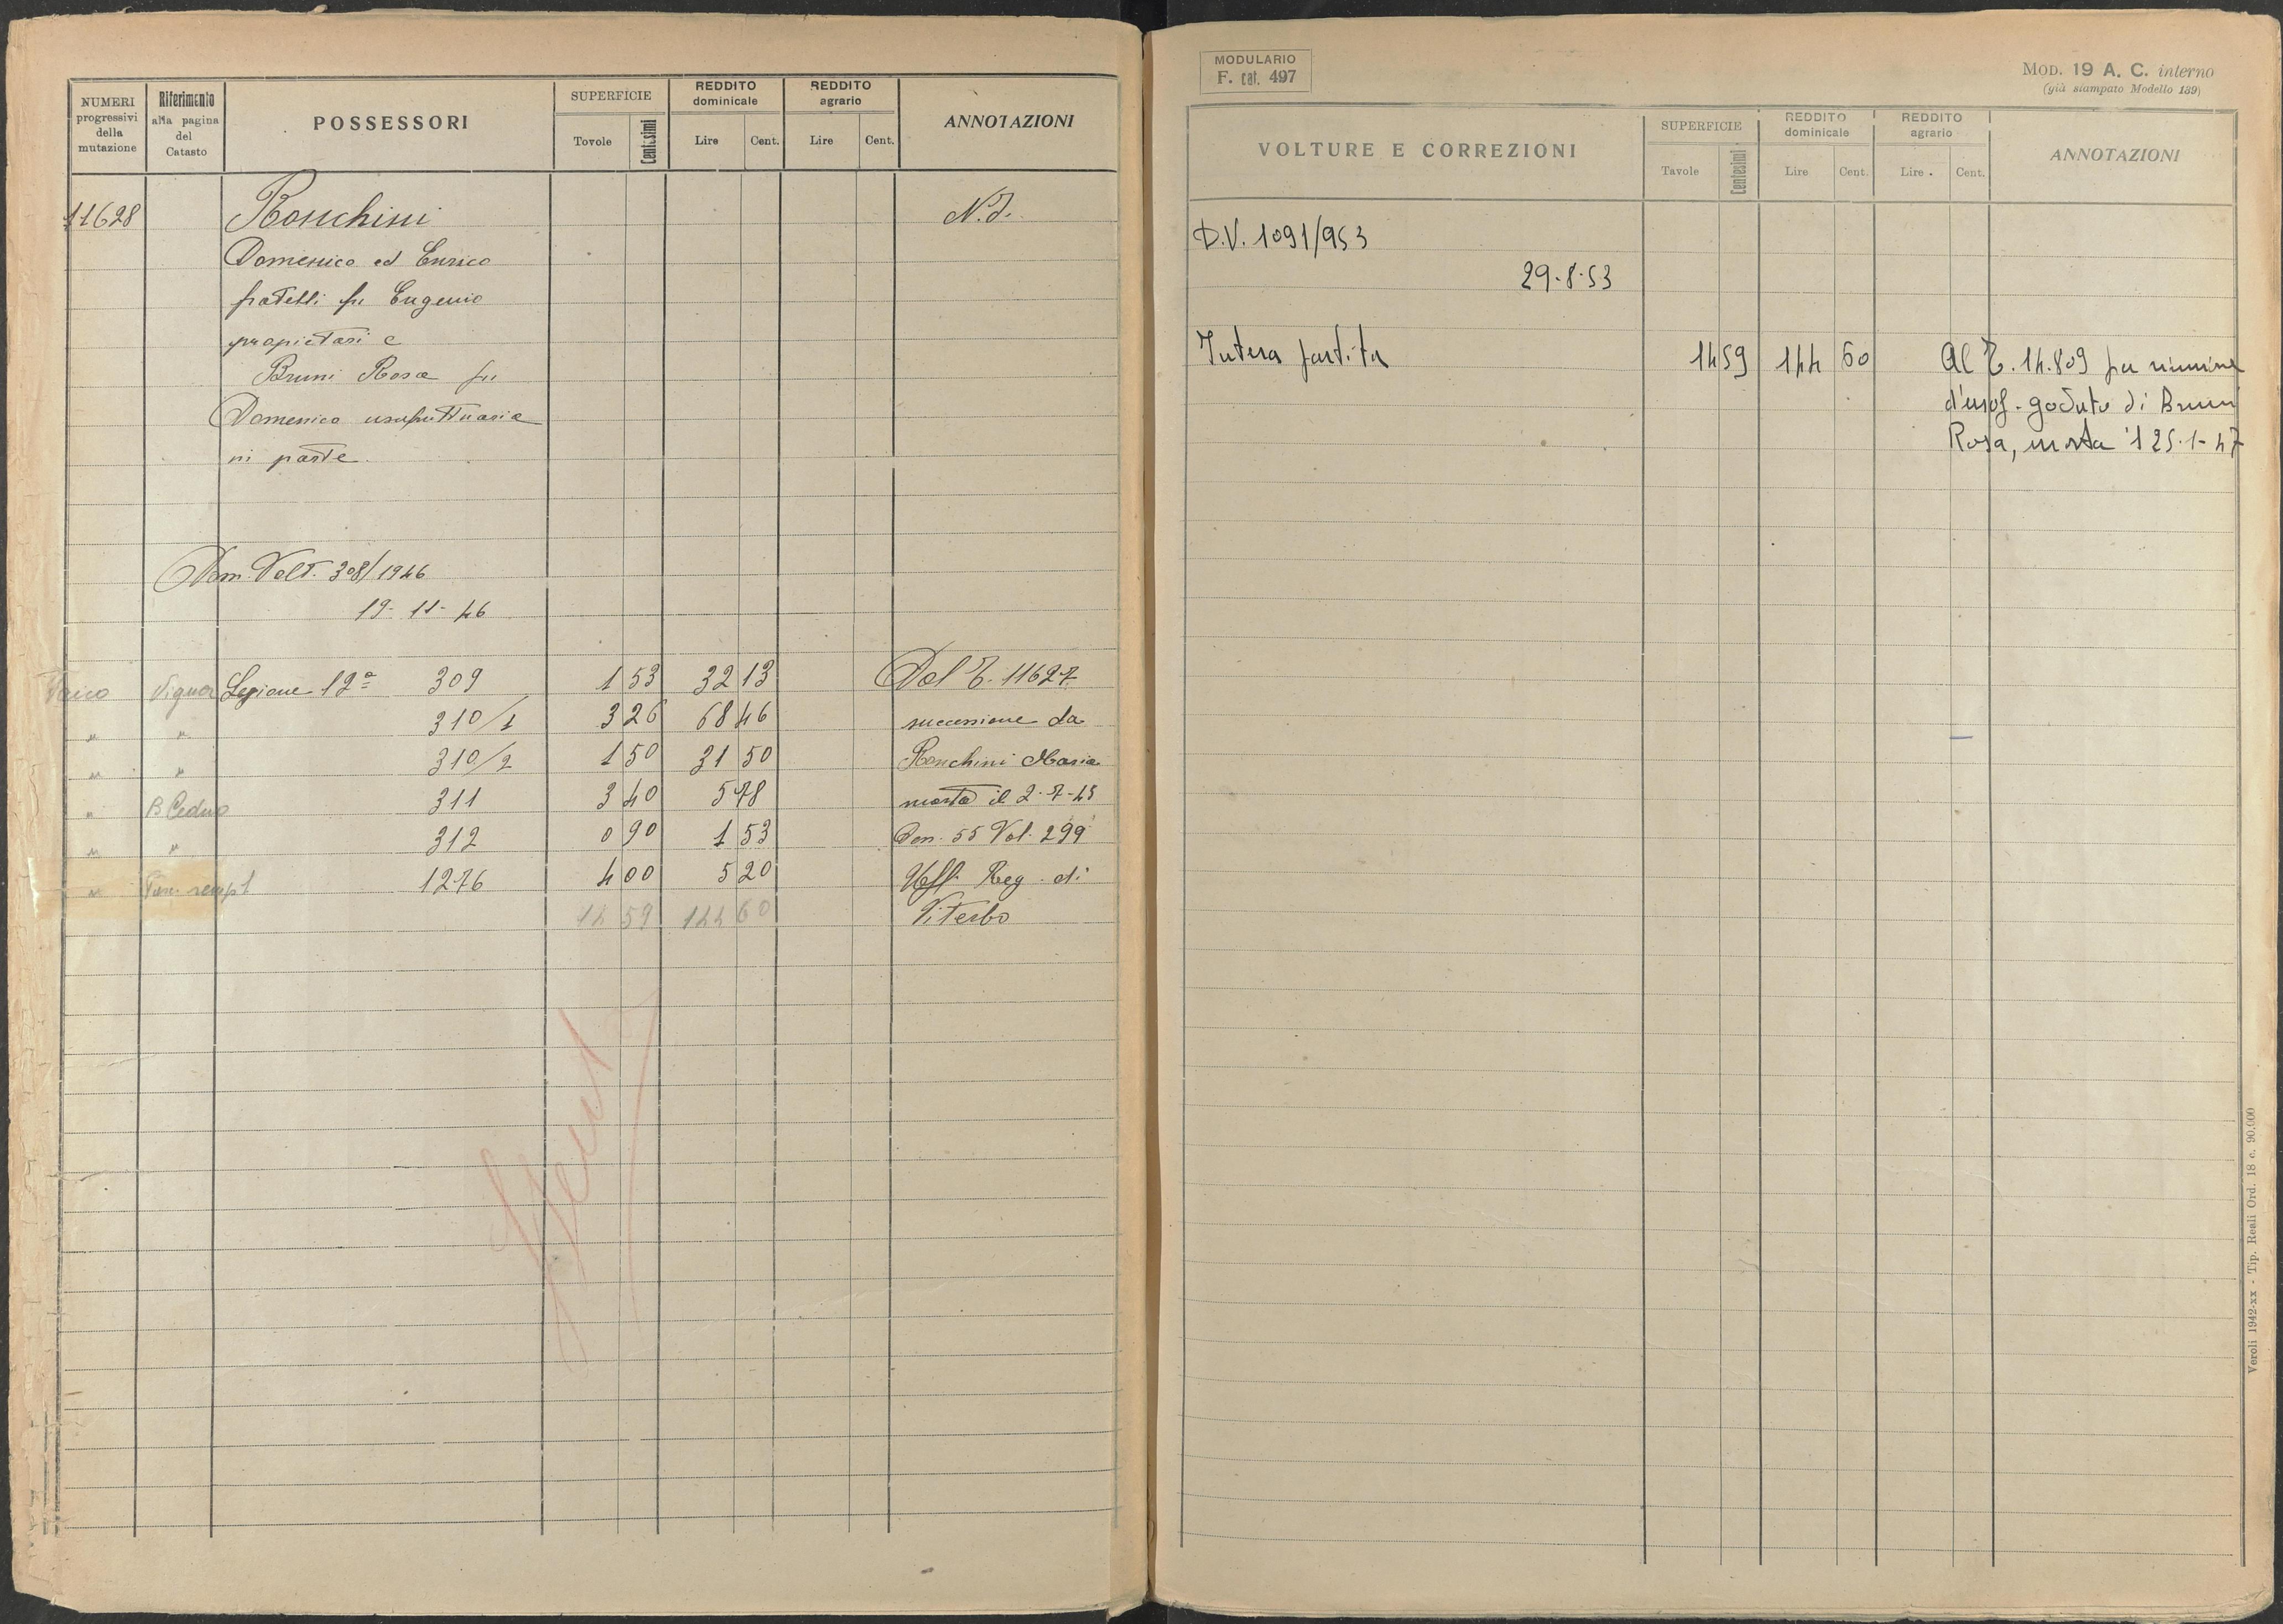 NUMERI progressivi della mutazione
Riferimento alla pagina del Catasto
POSSESSORI
SUPERFICIE
Tovole
Centesimi
REDDITO dominicale
Lire
Cent.
REDDITO agrario
Lire
Cent.
ANNOTAZIONI
11628 Ronchini
Domenico ed Enrico
fratelli fu Eugenio
propietari e
Bruni Rosa fu
Domenico usufruttuaria
in parte
Dom. Volt. 308/1946
19-11-46
Vigna Sezione 12ª 309 1 53 32 13 Dal T. 11627
" " 310/1 3 26 68 46 successione da
" " 310/2 1 50 31 50 Ronchini Maria
" B Ceduo 311 3 40 5 78 morta il 2-7-45
" " 312 0 90 1 53 Den. 55 Vol. 299
" sempl 1276 4 00 5 20 Uff. Reg. di
14 59 144 60 Viterbo
MODULARIO
F. cat. 497
MOD. 19 A. C. interno
(già stampato Modello 139)
VOLTURE E CORREZIONI
SUPERFICIE
Tavole
Centesimi
REDDITO dominicale
Lire
Cent.
REDDITO agrario
Lire
Cent.
ANNOTAZIONI
D.V. 1091/953
29-8-53
Intera partita 14 59 144 60 Al T. 14.809 per riunione
d'usof. goduto di Bruni
Rosa, morta 25-1-47
Veroli 1942-xx - Tip. Reali Ord. 18 c. 90.000